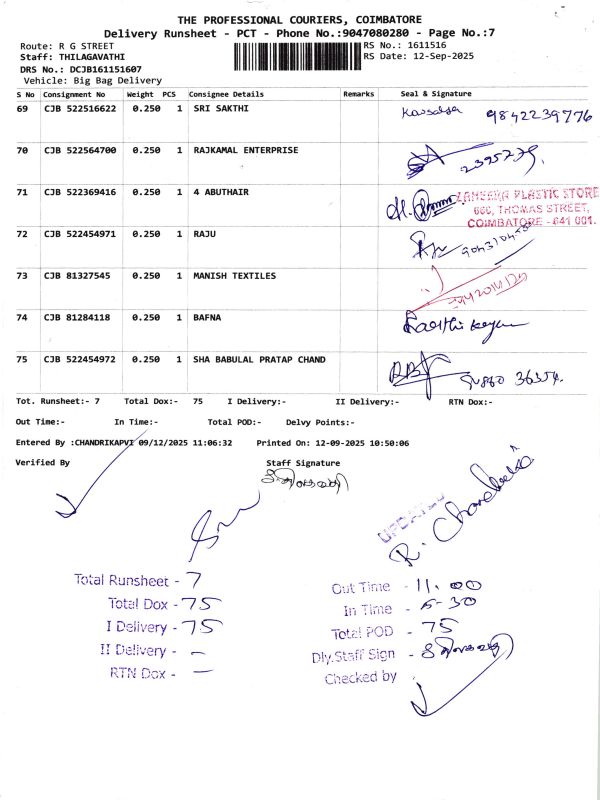 THE PROFESSIONAL COURIERS, COIMBATORE
Delivery Runsheet - PCT - Phone No.:9047080280 - Page No.:7
Route: R G STREET RS No.: 1611516
Staff: THILAGAVATHI RS Date: 12-Sep-2025
DRS No.: DCJB161151607
Vehicle: Big Bag Delivery
S No Consignment No Weight PCS Consignee Details Remarks Seal & Signature
69 CJB 522516622 0.250 1 SRI SAKTHI Kousalya 9842239776
70 CJB 522564700 0.250 1 RAJKAMAL ENTERPRISE
71 CJB 522369416 0.250 1 4 ABUTHAIR
ZAMEERA PLASTIC STORE
666, THOMAS STREET,
COIMBATORE - 641 001.
72 CJB 522454971 0.250 1 RAJU
73 CJB 81327545 0.250 1 MANISH TEXTILES
74 CJB 81284118 0.250 1 BAFNA
75 CJB 522454972 0.250 1 SHA BABULAL PRATAP CHAND
Tot. Runsheet:- 7 Total Dox:- 75 I Delivery:- II Delivery:- RTN Dox:-
Out Time:- In Time:- Total POD:- Delvy Points:-
Entered By :CHANDRIKAPVI 09/12/2025 11:06:32 Printed On: 12-09-2025 10:50:06
Verified By Staff Signature
UPDATED
Total Runsheet - 7
Total Dox - 75
I Delivery - 75
II Delivery - –
RTN Dox - –
Out Time - 11.00
In Time - 5-30
Total POD - 75
Dly.Staff Sign -
Checked by